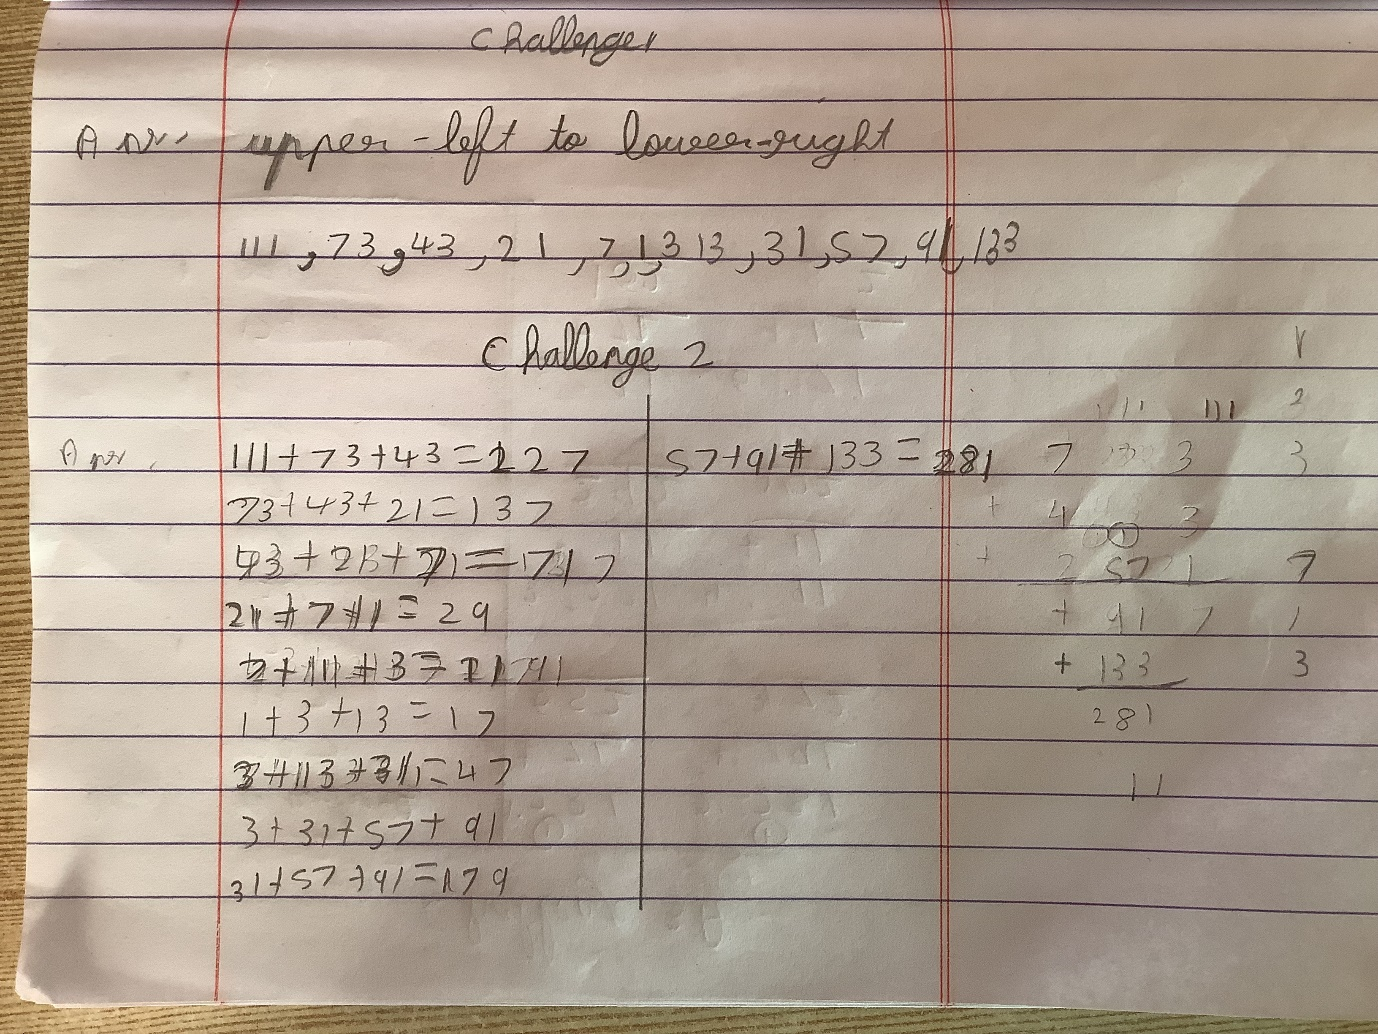 Challenge 1
Ans. upper-left to lower-right
111, 73, 43, 21, 7, 1, 3 13, 31, 57, 91, 133
Challenge 2
Ans. 111 + 73 + 43 = 227
73 + 43 + 21 = 137
21 + 7 + 1 = 29
1 + 3 + 13 = 17
3 + 13 + 31 = 47
3 + 31 + 57 + 91
31 + 57 + 91 = 179
57 + 91 + 133 = 281
111 2
7 3 3
+ 4 3
+ 2 57 1 7
+ 91 7 1
+ 133 3
281
11